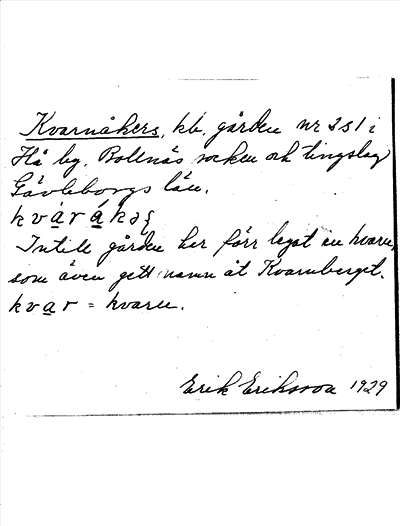 Kvarnåkers, kb. gården nr 2 s1 i
Hå by. Bollnäs socken och tingslag
Gävleborgs län.
kvárákəʂ
Intill gården har förr legat en kvarn,
som även gett namn åt Kvarnberget.
kvar = kvarn.
Erik Eriksson 1929